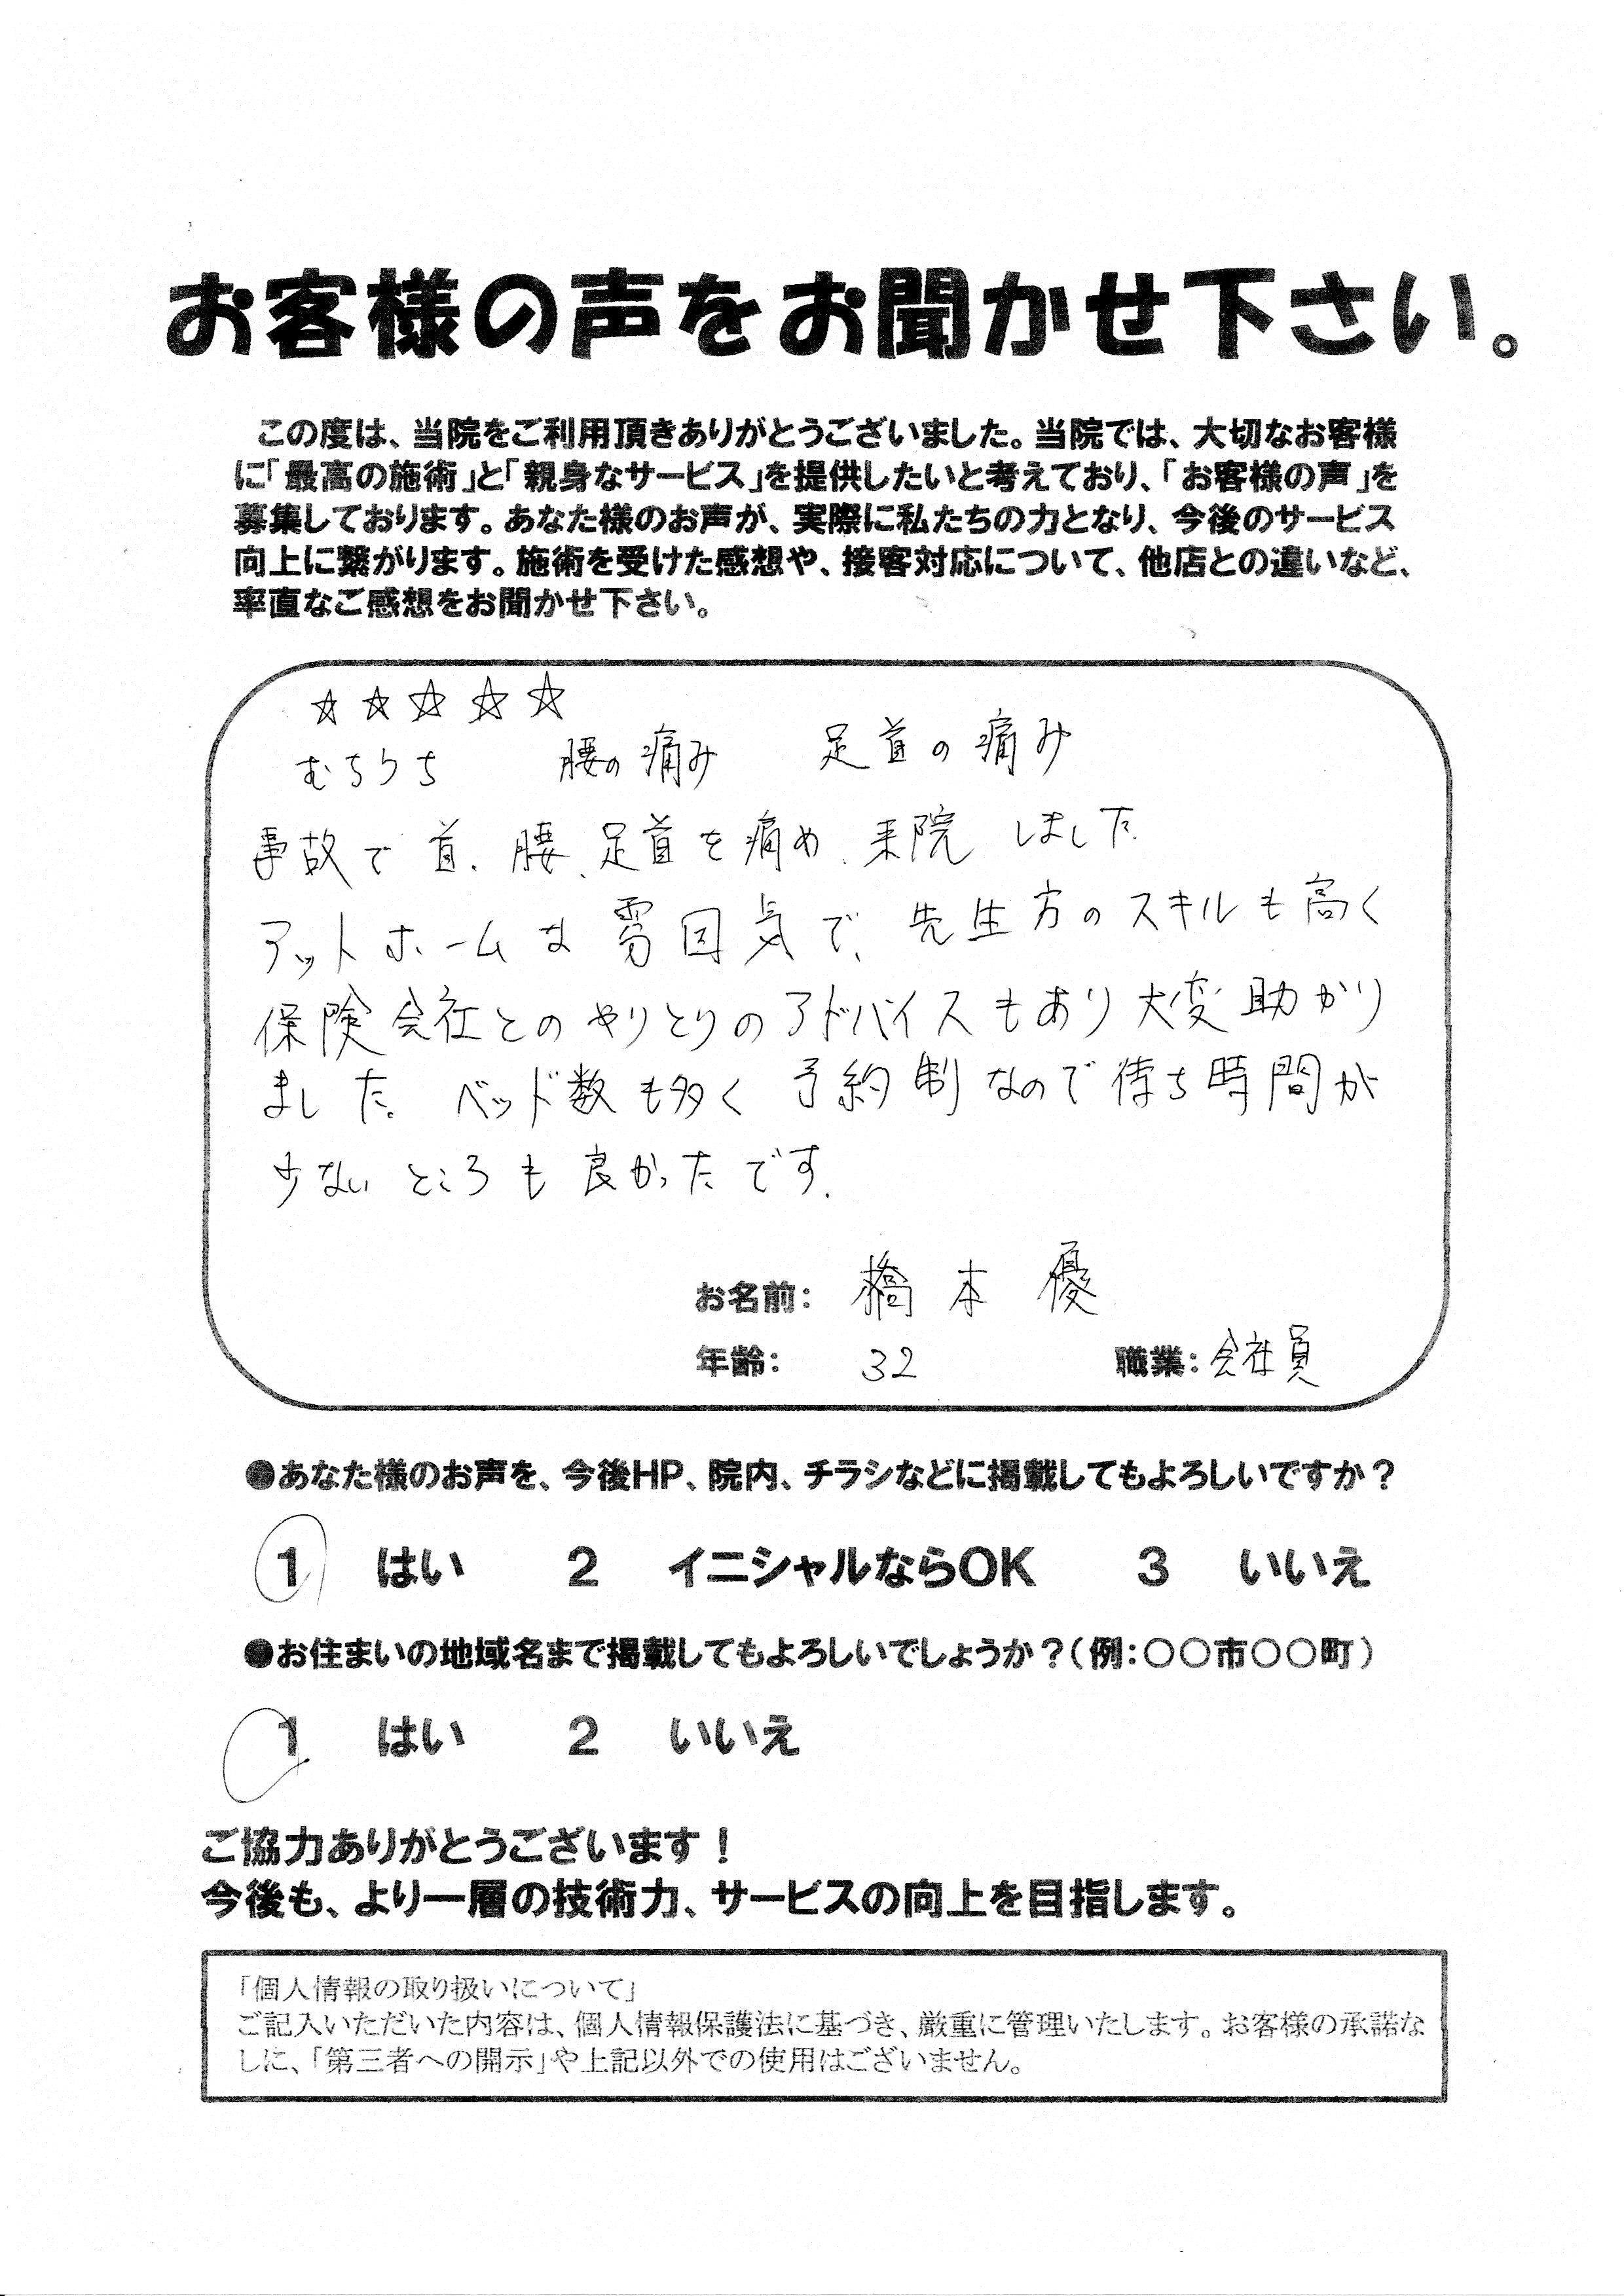 お客様の声をお聞かせ下さい。
この度は、当院をご利用頂きありがとうございました。当院では、大切なお客様
に「最高の施術」と「親身なサービス」を提供したいと考えており、「お客様の声」を
募集しております。あなた様のお声が、実際に私たちの力となり、今後のサービス
向上に繋がります。施術を受けた感想や、接客対応について、他店との違いなど、
率直なご感想をお聞かせ下さい。
☆☆☆☆☆
むちうち 腰の痛み 足首の痛み
事故で首、腰、足首を痛め、来院しました
アットホームな雰囲気で、先生方のスキルも高く
保険会社とのやりとりのアドバイスもあり大変助かり
ました。ベッド数も多く予約制なので待ち時間が
少ないところも良かったです。
お名前： 橋本 優
年齢： 32 職業：会社員
●あなた様のお声を、今後HP、院内、チラシなどに掲載してもよろしいですか？
1 はい 2 イニシャルならOK 3 いいえ
●お住まいの地域名まで掲載してもよろしいでしょうか？（例：〇〇市〇〇町）
1 はい 2 いいえ
ご協力ありがとうございます！
今後も、より一層の技術力、サービスの向上を目指します。
「個人情報の取り扱いについて」
ご記入いただいた内容は、個人情報保護法に基づき、厳重に管理いたします。お客様の承諾な
しに、「第三者への開示」や上記以外での使用はございません。